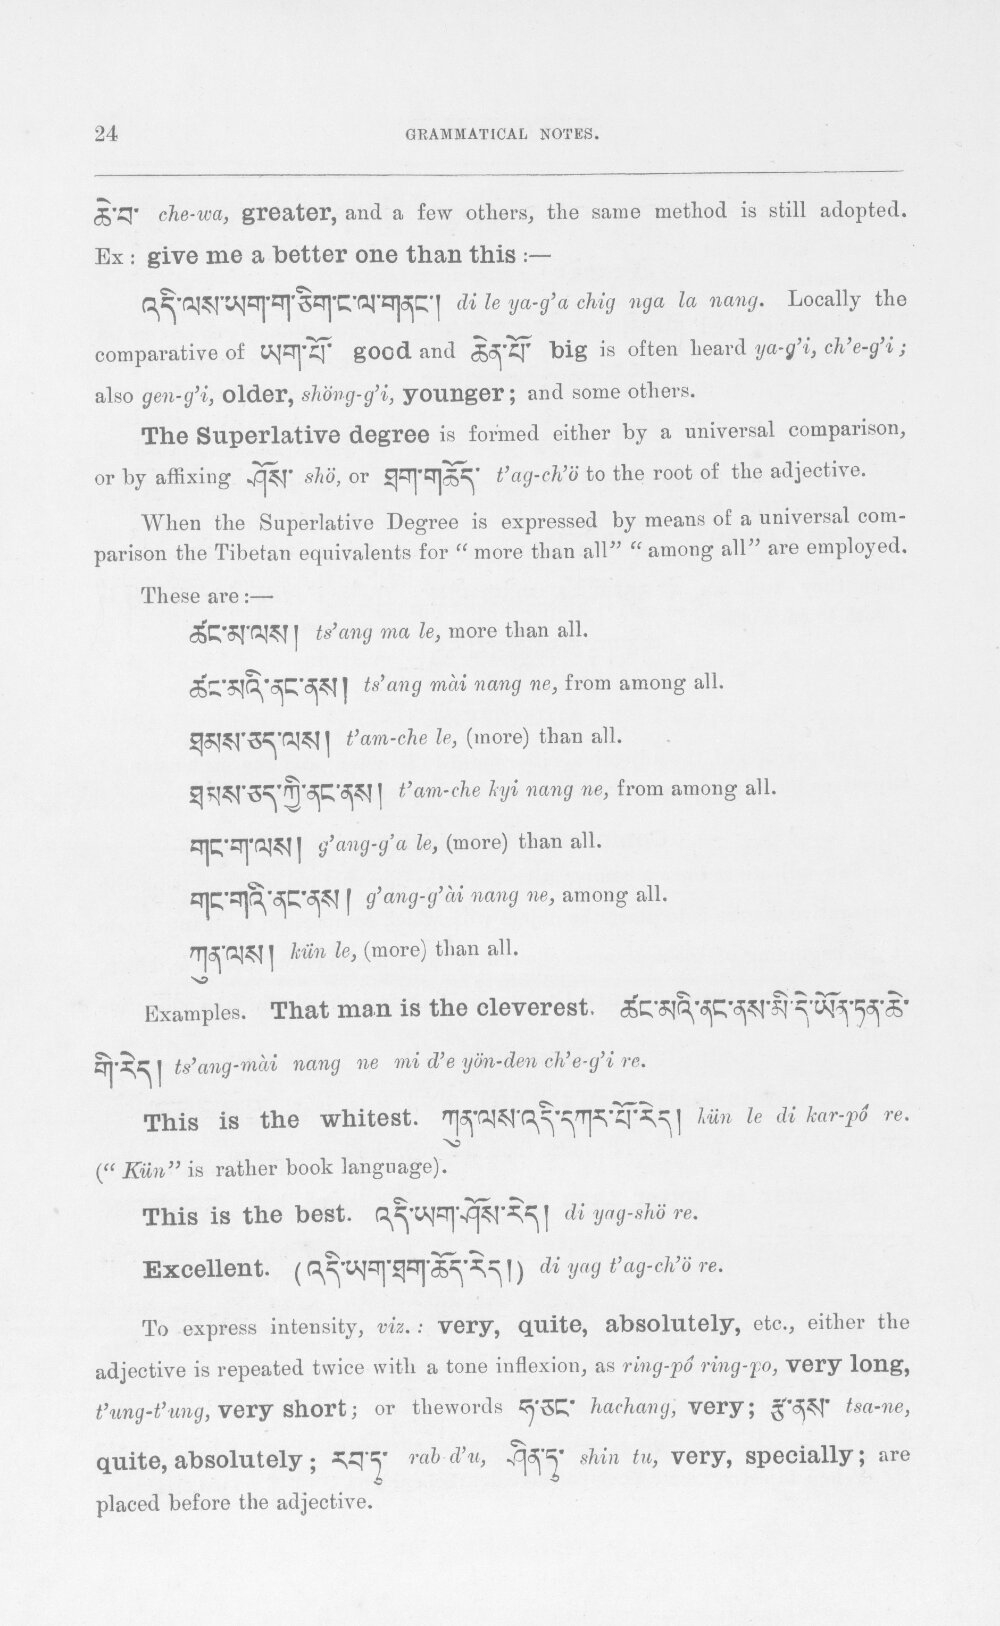 24 GRAMMATICAL NOTES.
ཆེ་བ་ che-wa, greater, and a few others, the same method is still adopted.
Ex : give me a better one than this :—
འདི་ལས་ཡག་ག་ཅིག་ང་ལ་གནང་། di le ya-g’a chig nga la nang. Locally the
comparative of ཡག་པོ་ good and ཆེན་པོ་ big is often heard ya-g’i, ch’e-g’i ;
also gen-g’i, older, shöng-g’i, younger ; and some others.
The Superlative degree is formed either by a universal comparison,
or by affixing ཤོས་ shö, or ཐག་གཆོད་ t’ag-ch’ö to the root of the adjective.
When the Superlative Degree is expressed by means of a universal com-
parison the Tibetan equivalents for “ more than all” “ among all” are employed.
These are :—
ཚང་མ་ལས། ts’ang ma le, more than all.
ཚང་མའི་ནང་ནས། ts’ang mài nang ne, from among all.
ཐམས་ཅད་ལས། t’am-che le, (more) than all.
ཐམས་ཅད་ཀྱི་ནང་ནས། t’am-che kyi nang ne, from among all.
གང་ག་ལས། g’ang-g’a le, (more) than all.
གང་གའི་ནང་ནས། g’ang-g’ài nang ne, among all.
ཀུན་ལས། kün le, (more) than all.
Examples. That man is the cleverest. ཚང་མའི་ནང་ནས་མི་དེ་ཡོན་ཏན་ཆེ་
གི་རེད། ts’ang-mài nang ne mi d’e yön-den ch’e-g’i re.
This is the whitest. ཀུན་ལས་འདི་དཀར་པོ་རེད། kün le di kar-pó re.
(“ Kün” is rather book language).
This is the best. འདི་ཡག་ཤོས་རེད། di yag-shö re.
Excellent. (འདི་ཡག་ཐག་ཆོད་རེད།) di yag t’ag-ch’ö re.
To express intensity, viz. : very, quite, absolutely, etc., either the
adjective is repeated twice with a tone inflexion, as ring-pó ring-po, very long,
t’ung-t’ung, very short ; or thewords ཧ་ཅང་ hachang, very ; རྩ་ནས་ tsa-ne,
quite, absolutely ; རབ་ཏུ་ rab d’u, ཤིན་ཏུ་ shin tu, very, specially ; are
placed before the adjective.